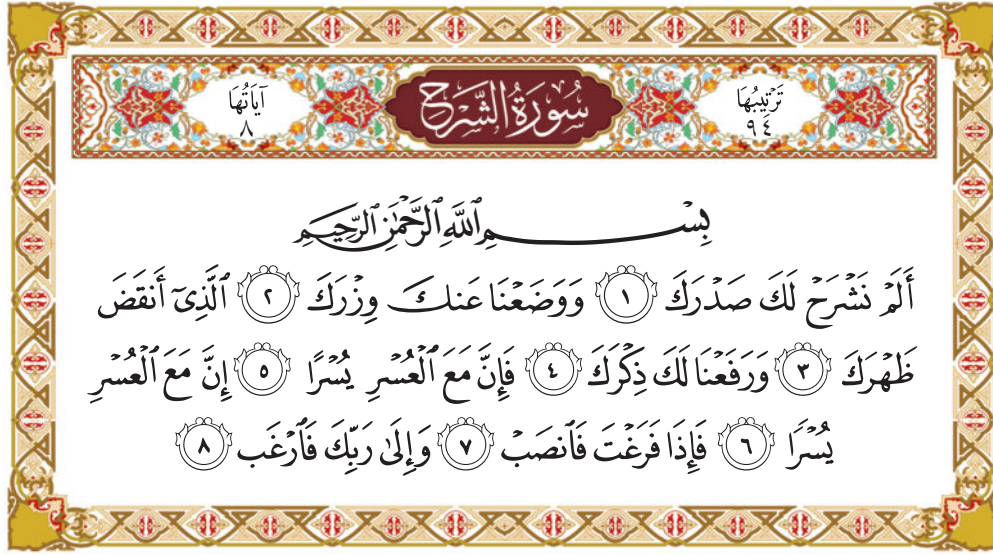 تَرْتِيبُهَا
٩٤
سُورَةُ الشَّرْحِ
آيَاتُهَا
٨
بِسْمِ ٱللَّهِ ٱلرَّحْمَٰنِ ٱلرَّحِيمِ
أَلَمْ نَشْرَحْ لَكَ صَدْرَكَ ١ وَوَضَعْنَا عَنكَ وِزْرَكَ ٢ ٱلَّذِىٓ أَنقَضَ
ظَهْرَكَ ٣ وَرَفَعْنَا لَكَ ذِكْرَكَ ٤ فَإِنَّ مَعَ ٱلْعُسْرِ يُسْرًا ٥ إِنَّ مَعَ ٱلْعُسْرِ
يُسْرًا ٦ فَإِذَا فَرَغْتَ فَٱنصَبْ ٧ وَإِلَىٰ رَبِّكَ فَٱرْغَب ٨